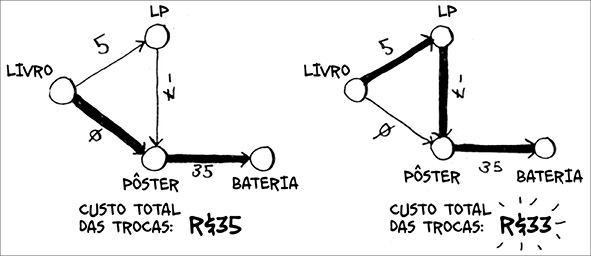 LP
5
LIVRO
-7
Ø
35
PÔSTER
BATERIA
CUSTO TOTAL
DAS TROCAS: R$35
LP
5
LIVRO
-7
Ø
35
PÔSTER
BATERIA
CUSTO TOTAL
DAS TROCAS: R$33